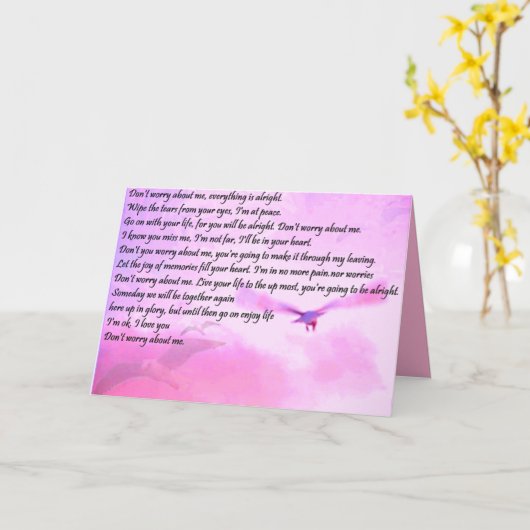 Don't worry about me, everything is alright.
Wipe the tears from your eyes, I'm at peace.
Go on with your life, for you will be alright. Don't worry about me.
I know you miss me, I'm not far, I'll be in your heart.
Don't you worry about me, you're going to make it through my leaving.
Let the joy of memories fill your heart. I'm in no more pain.nor worries
Don't worry about me. Live your life to the up most, you're going to be alright.
Someday we will be together again
here up in glory, but until then go on enjoy life
I'm ok, I love you
Don't worry about me.